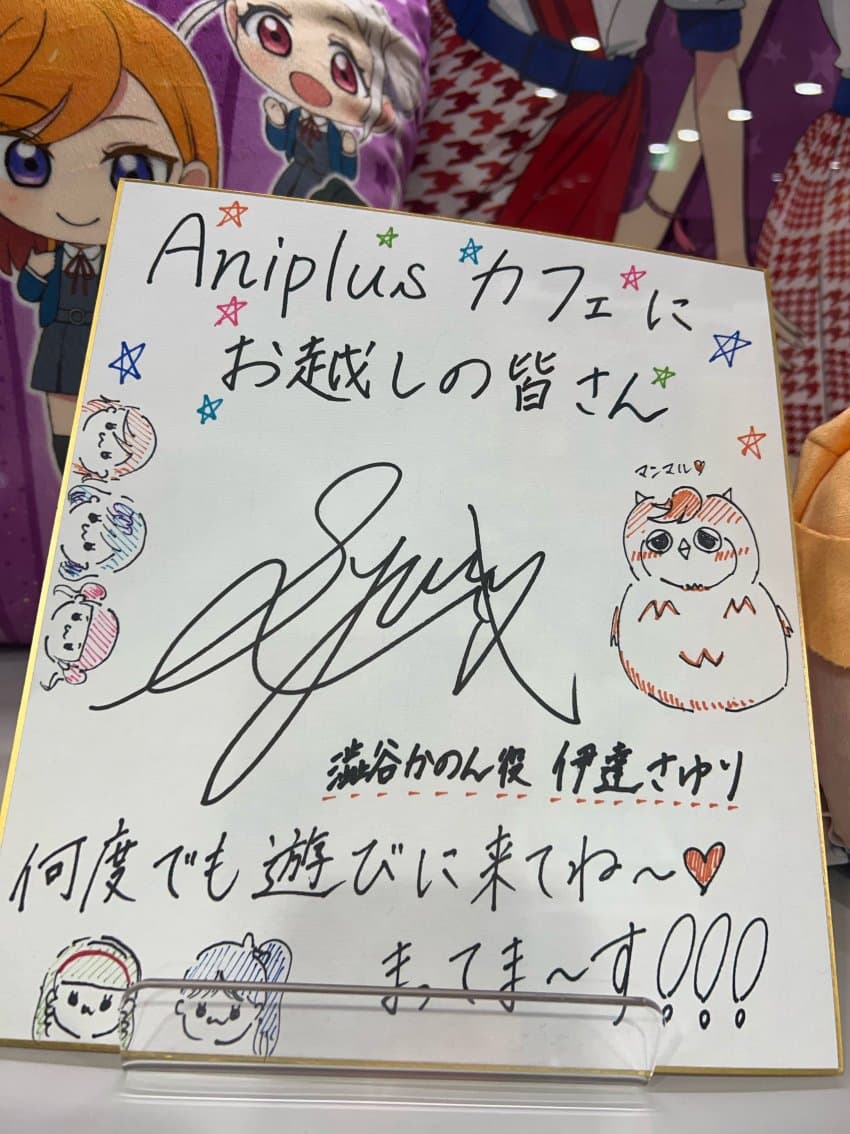 Aniplus カフェに
お越しの皆さん
マンマル
澁谷かのん役 伊達さゆり
何度でも遊びに来てね〜
まってま〜す!!!